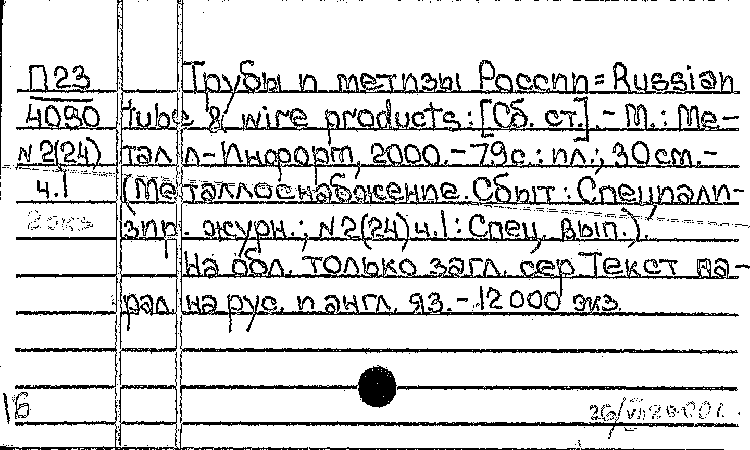 П23 Трубы и метизы России = Russian
4090 tube & wire products : [Сб. ст.]. - М. : Ме-
N2(24) талл-Информ, 2000. - 79с. : ил. ; 30см. -
ч.1 (Металлоснабжение. Сбыт : Специали-
2 экз зир. журн. ; N2(24)ч.1 : Спец. вып.).
На обл. только загл. сер. Текст па-
рал. на рус. и англ. яз. - 12000 экз.
1б 26/VI 2000г.